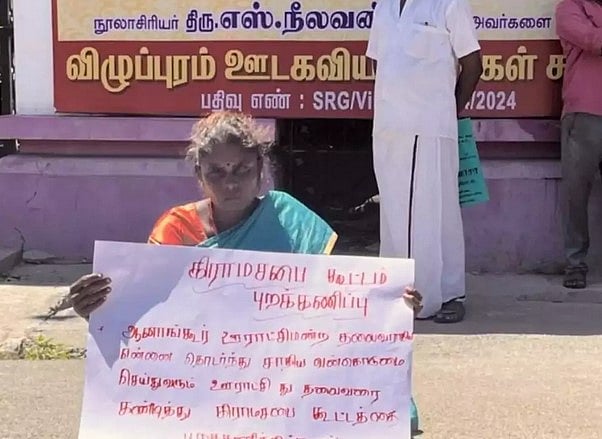 நூலாசிரியர் திரு.எஸ்.நீலவண் அவர்களை
விழுப்புரம் ஊடகவிய கள் ச
பதிவு எண் : SRG/Vi /2024
கிராமசபை கூட்டம்
புறக்கணிப்பு
ஆனாங்கூர் ஊராட்சிமன்ற தலைவராகிய
என்னை தொடர்ந்து சாதிய வன்கொடுமை
செய்துவரும் ஊராட்சி து தலைவரை
கண்டித்து கிராமசபை கூட்டத்தை